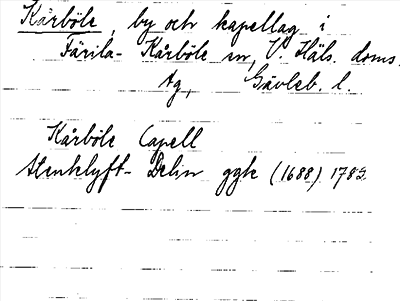 Kårböle, by och kapellag i
Färila-Kårböle sn, V. Häls. doms.
tg, Gävleb. l.
Kårböle Capell
Stenklyft- Delin ggk (1688) 1785